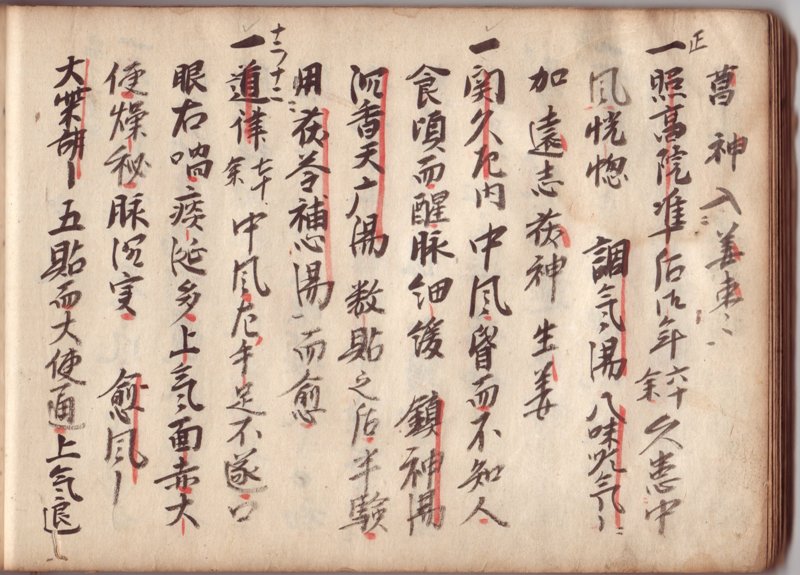 菖 神 入 姜 棗
正
一照高院准后御年六十余久患中
風恍惚 調气湯 八味順气〻
加 遠志 茯神 生姜
一関久左内 中風昏而不知人
食頃而醒脉細緩 鎮神湯
沉香天广湯 数貼之后半験
用茯苓補心湯而愈
十二ノ十二
一道律七十余 中風左手足不遂口
眼右喎痰涎多上气面赤大
便燥秘脉沉実 愈風ー
大柴胡ー五貼而大便通上气退